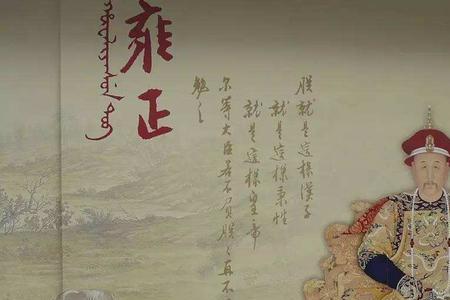 雍正
朕就是這樣漢子
就是這樣秉性
就是這樣皇帝
尔等大臣若不負朕〻再不
勉之